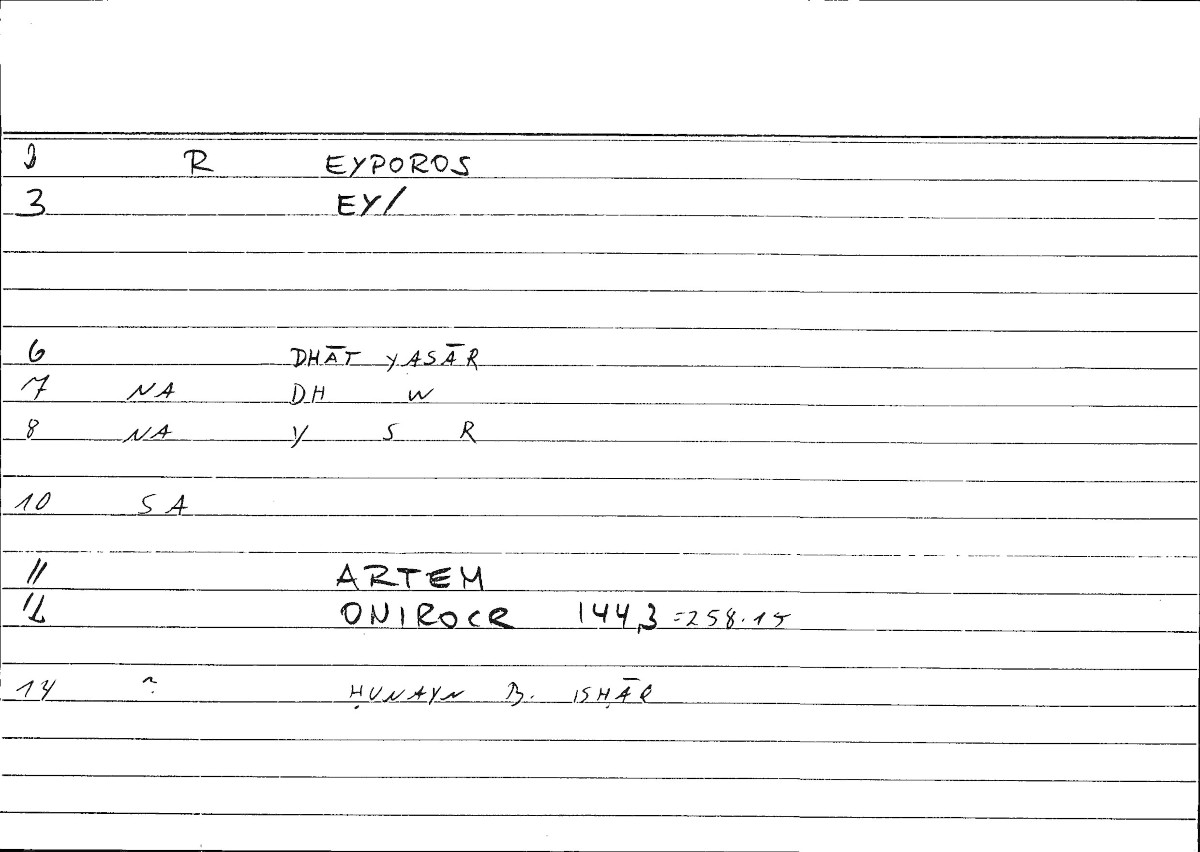 R EYPOROS
3 EY/
6 DHĀT YASĀR
7 NA DH W
8 NA Y S R
10 SA
11 ARTEM
12 ONIROCR 144,3 =258.15
14 ~. ḤUNAYN B. ISḤĀQ